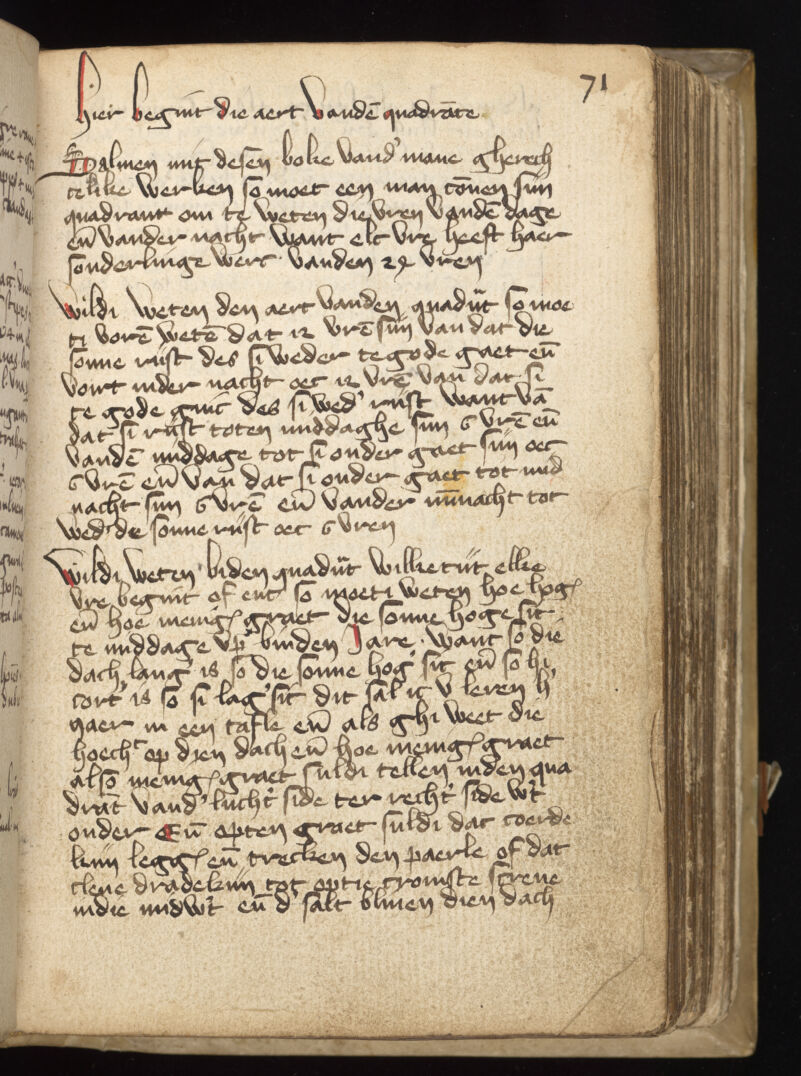 71
Hier begint die aert vandē quadrāte
Salmen mit desen boke vand' mane gherech
telike werken so moet een man cōnen sijn
quadrant om te weten die vren vandē dage
en̄ vander nacht want elc vre heeft haer
sonderlinge werc vanden 24 vren
Wildi weten den aert vanden quadrāt so moe
ti vorē wetē dat 12 vrē sijn van dat die
sonne rijst des si weder te gode gaet en̄
voirt inder nacht oec 12 vrē van dat si
te gode ginc des si wed' rijst want vā
dat si rijst toten middaghe sijn 6 vrē en̄
vandē middage tot si onder gaet sijn oec
6 vrē en̄ van dat si onder gaet tot mid
nacht sijn 6 vrē en̄ vander m̄nacht tot
wed' de sonne rijst oec 6 vren
Wildi weten biden quadrāt wilke tijt elke
vre begint of ent so moeti weten hoe hog'
en̄ hoe menig' graet die sonne hoge sit
te middage vp binden Jare. want so die
dach lang' is so die sonne hog' sit en̄ so hi
cort' is so si lag' sit dit sal ic v leren h'
naer in een tafle en̄ als ghi weet die
hoecht op dien dach en̄ hoe menig' graet
also menig' graet suldi tellen inden qua
drāt vand' lucht' side ter recht' side w't
onder En̄ opten graet suldi dat coerde
kijn legg' en̄ trecken den paerle of dat
clene dradekijn tot optie cromste screne
indie midw't en̄ d' salt bliuen dien dach